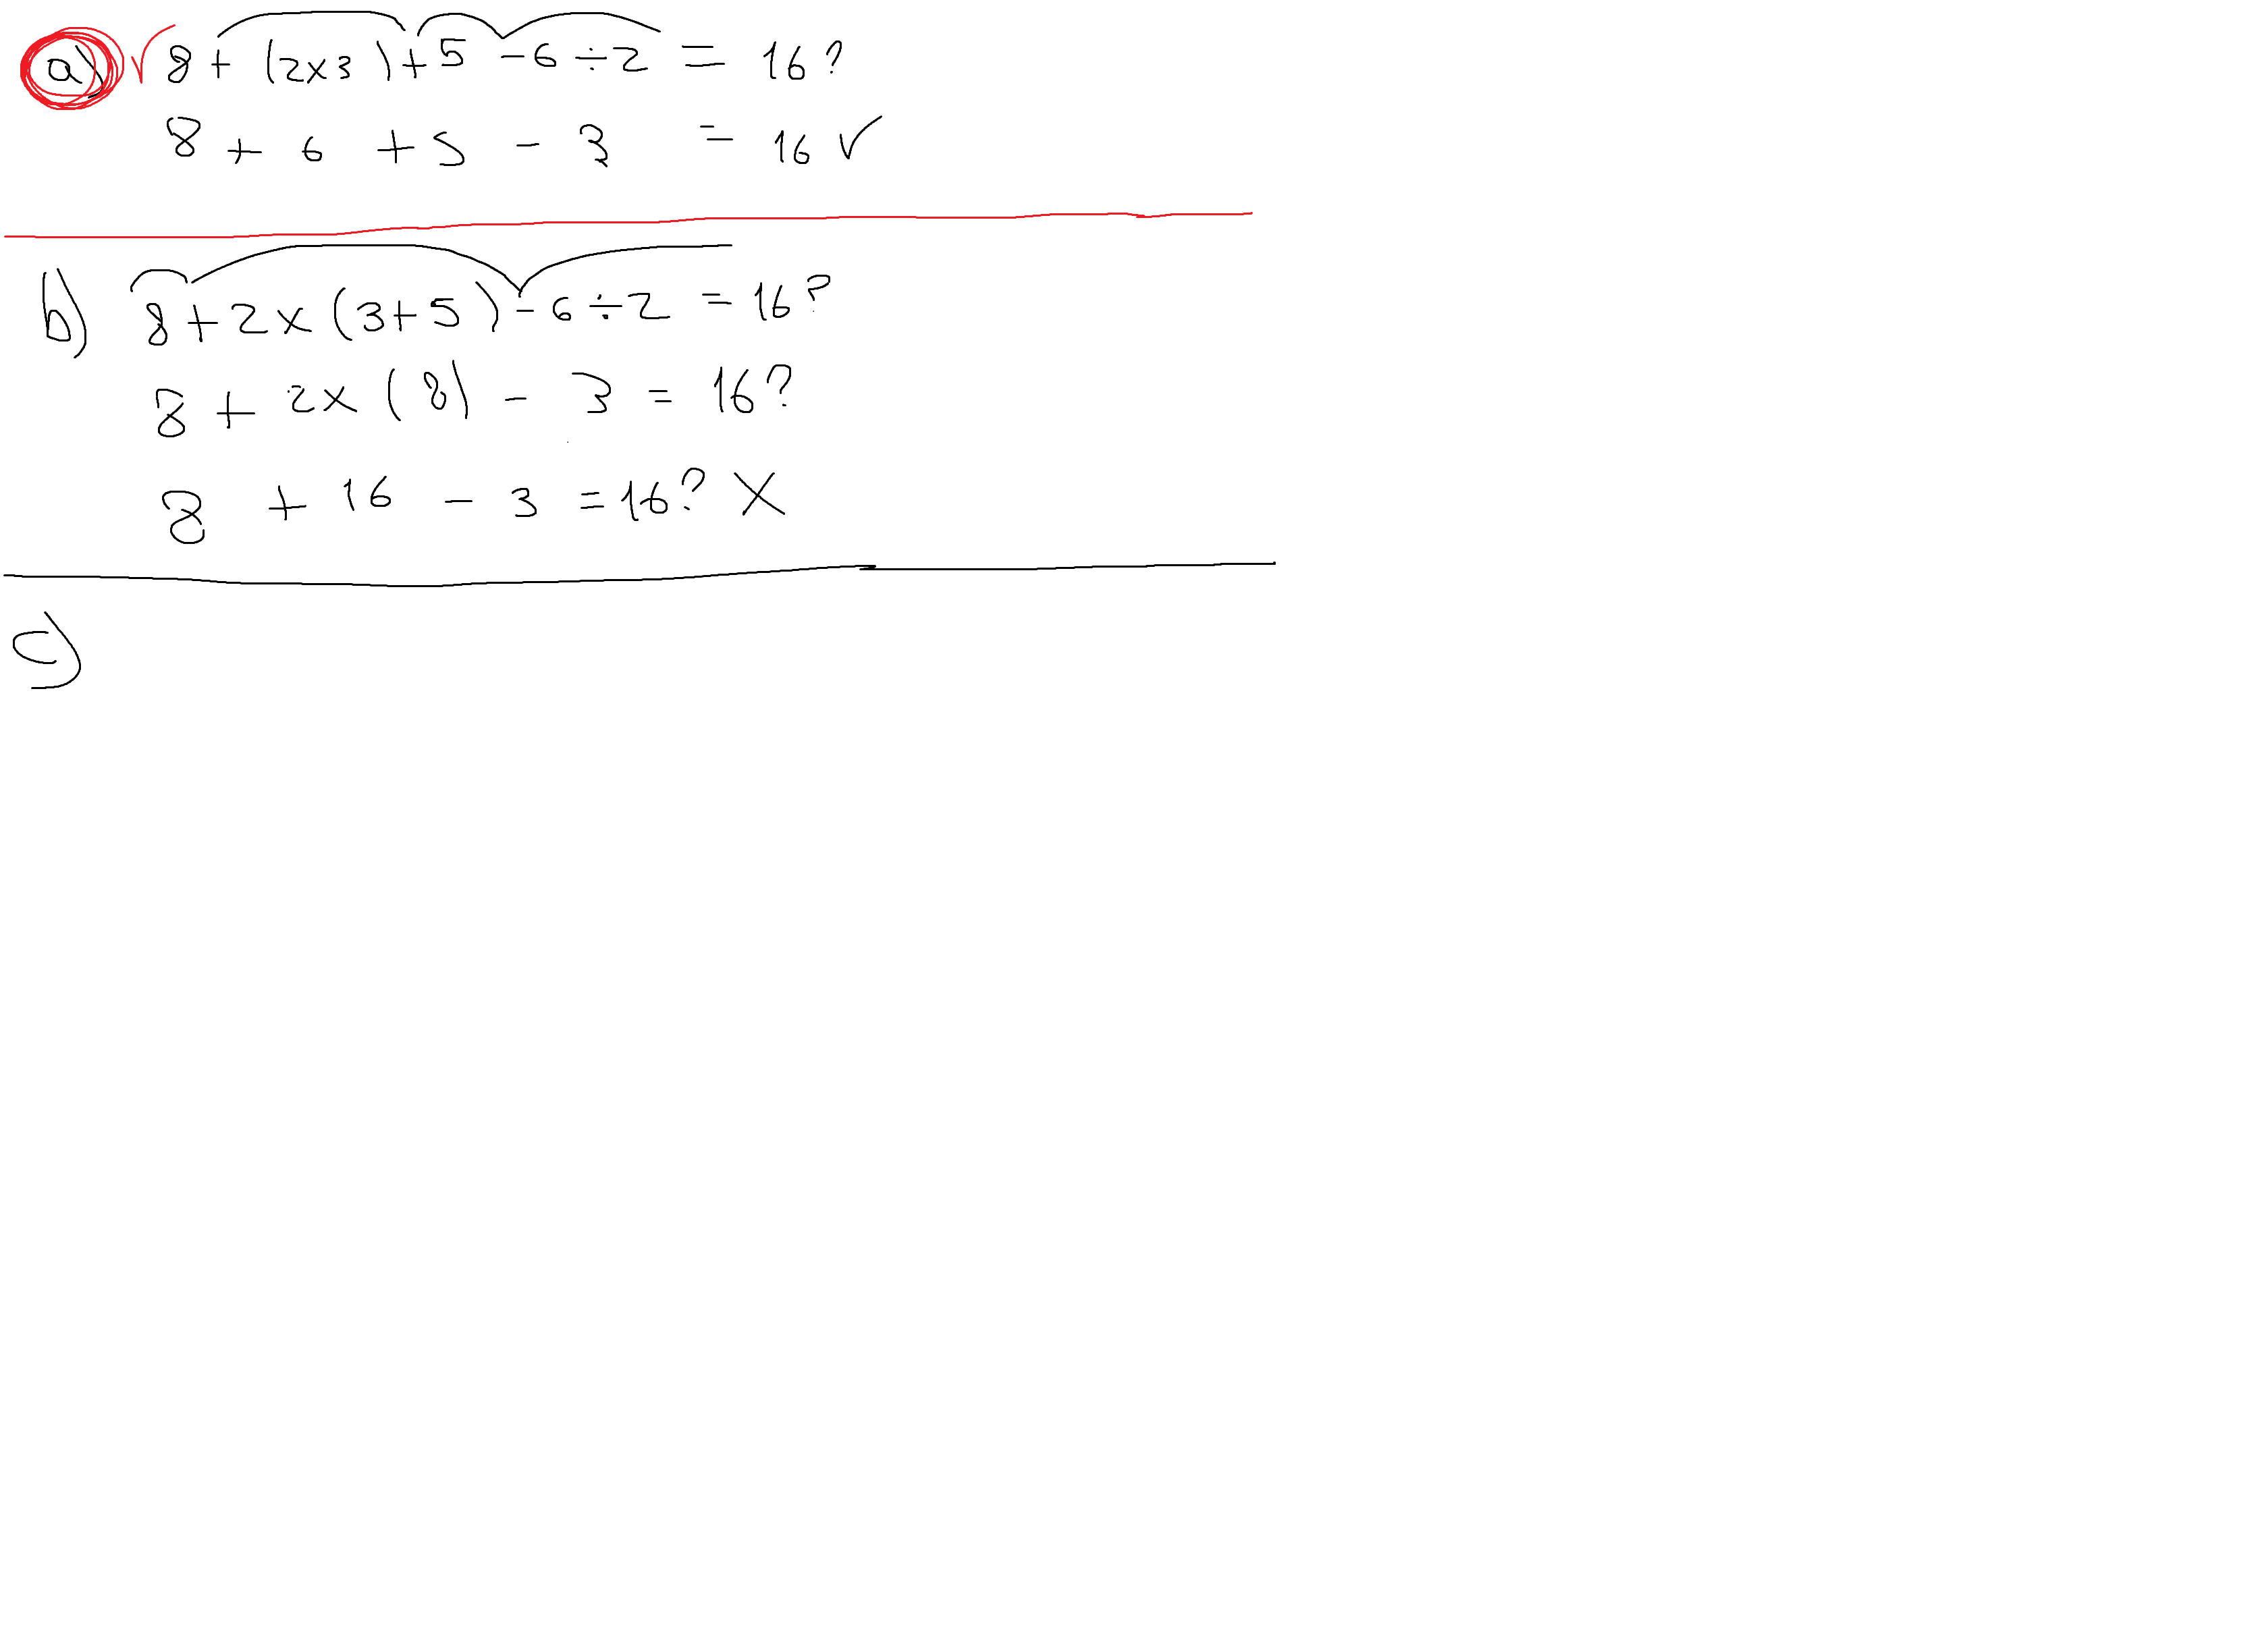 a) √ 8 + (2x3) + 5 - 6 ÷ 2 = 16?
8 + 6 + 5 - 3 = 16 √
b) 8 + 2 x (3+5) - 6 ÷ 2 = 16?
8 + 2x (8) - 3 = 16?
8 + 16 - 3 = 16? X
c)